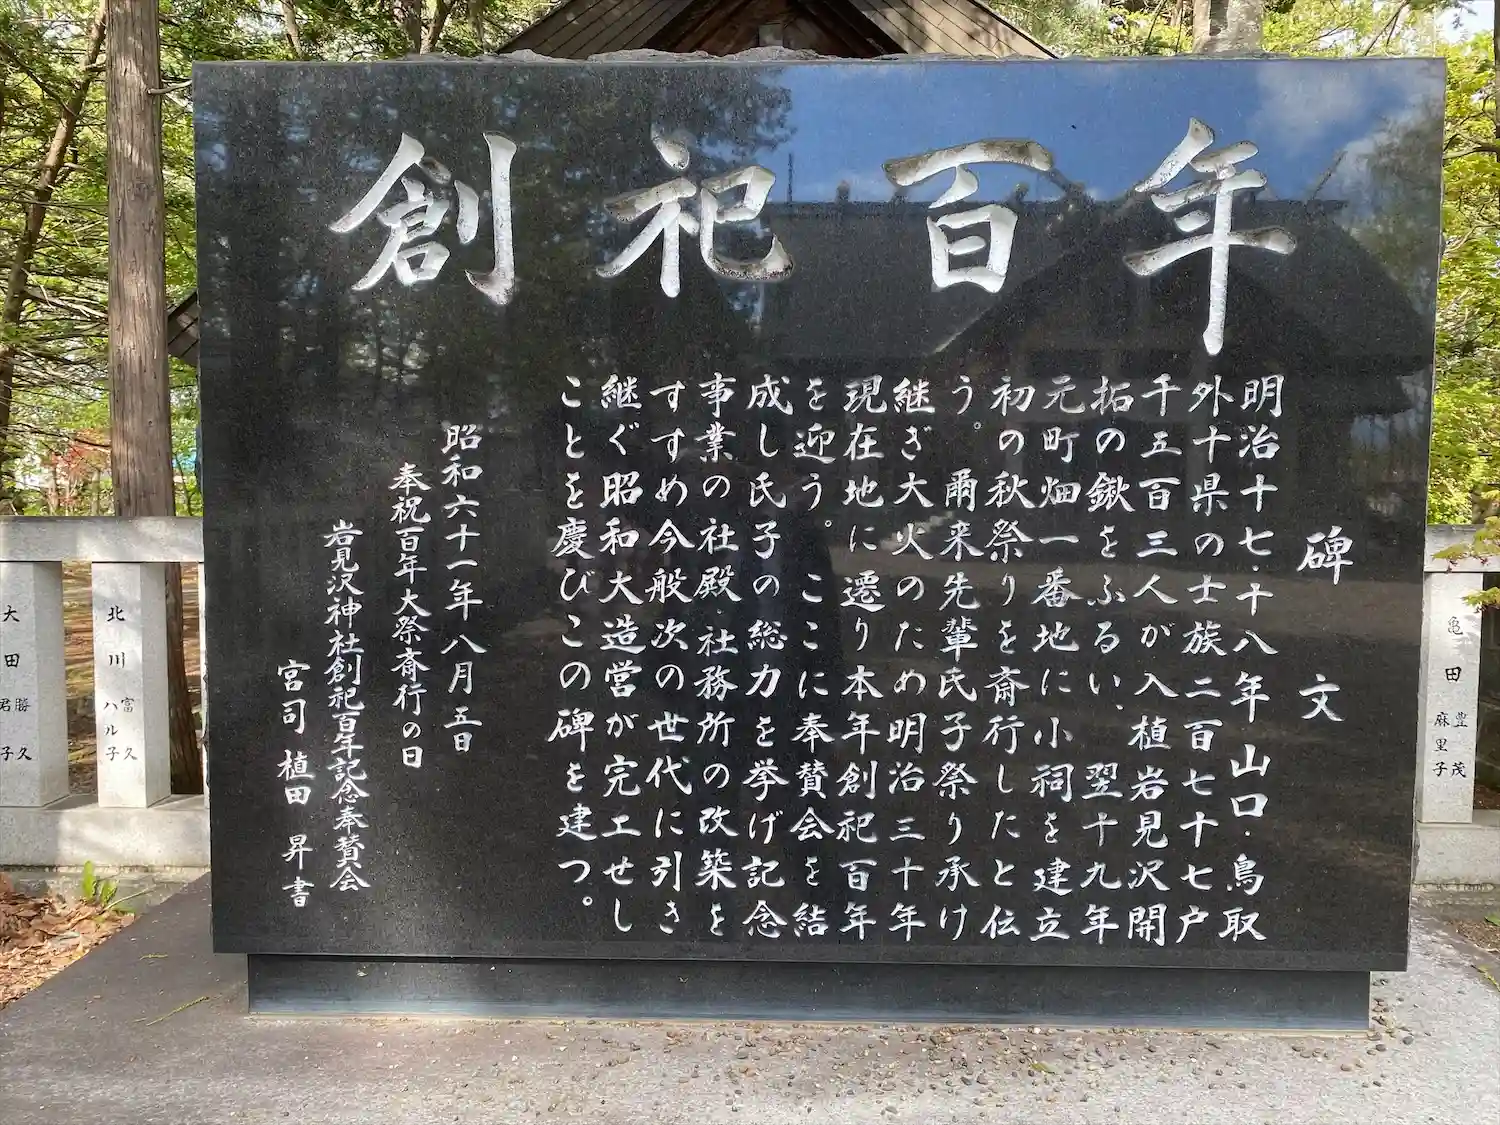 創祀百年
碑文
明治十七・十八年・山口・鳥取
外十県の士族二百七十七戸
千五百三人が入植岩見沢開
拓の鍬をふるい、翌十九年
元町畑一番地に小祠を建立
初の秋祭りを斎行したと伝
う。爾来先輩氏子祭り承け
継ぎ大火のため明治三十年
現在地に遷り本年創祀百年
を迎う。ここに奉賛会を結
成し氏子の総力を挙げ記念
事業の社殿・社務所の改築を
すすめ今般次の世代に引き
継ぐ昭和大造営が完工せし
ことを慶びこの碑を建つ。
昭和六十一年八月五日
奉祝百年大祭斎行の日
岩見沢神社創祀百年記念奉賛会
宮司 植田 昇 書
亀田
豊茂
麻里子
北川
富久
ハル子
大田
勝久
君子